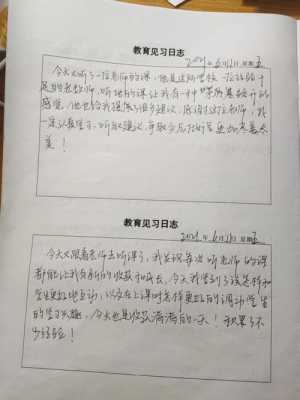 教育见习日志
2021年6月 日 星期五
今天又听了一位老师的课,他是这所学校一位经验十
足的老教师,听他的课让我有一种 的
感觉,他也给我提了很多建议,感谢这位老师,我
一定认真学习,听取建议,争取今后
美!
教育见习日志
2021年6月 日 星期五
今天又跟着老师去听课了,我发现每次听老师的课
都能让我有新的收获和成长。今天我学到了该怎样和
学生更好地互动,以及在上课时怎样更好的调动学生
的学习兴趣,今天也是收获满满的一天!积累了不
少经验!